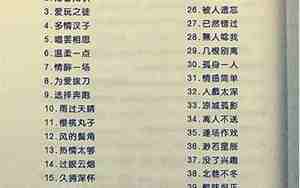 3. 爱玩之徒
4. 多情汉子
5. 唱罢相思
6. 温柔一点
7. 情醉一场
8. 为爱拔刀
9. 选择奔跑
10. 雨过天晴
11. 樱桃丸子
12. 风的鬓角
13. 热情太够
14. 过眼云烟
15. 久旖深怀
26. 被人遗忘
27. 已然错过
28. 無人唸我
29. 几根别离
30. 孤身一人
31. 情感简单
32. 人戲太深
33. 凉城孤影
34. 离人不送
35. 逢场作戏
36. 渺若星辰
37. 没了兴趣
38. 北巷不冬